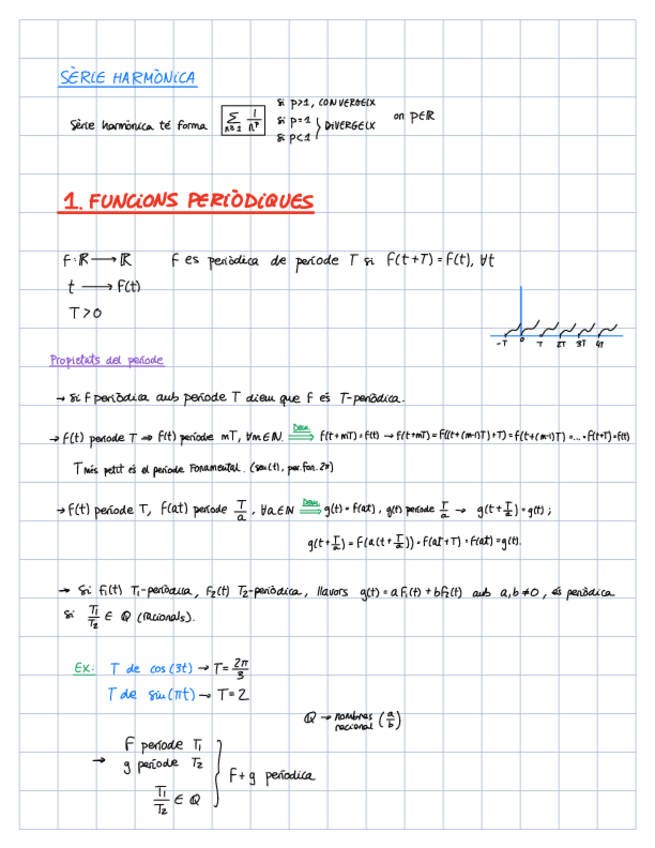 SÈRIE HARMÒNICA
si p>1, CONVERGEIX
Sèrie harmònica té forma ∑ n≥1 1/n^p si p=1 } DIVERGEIX on p∈R
si p<1
1. FUNCIONS PERIÒDIQUES
f: ℝ → ℝ f es periòdica de període T si f(t+T) = f(t), ∀t
t → f(t)
T>0
-T 0 T 2T 3T 4T
Propietats del període
→ Si f periòdica amb període T diem que f és T-periòdica.
→ f(t) període T ⇒ f(t) període mT, ∀m∈N. Dem. ⟹ f(t+mT)=f(t) → f(t+mT) = f((t+(m-1)T)+T) = f(t+(m-1)T) = ... = f(t+T) = f(t)
T més petit és el període Fonamental. (sin(t), per.fon. 2π)
→ f(t) període T, f(at) període T/a, ∀a∈N Dem. ⟹ g(t) = f(at), g(t) període T/a → g(t+T/a) = g(t);
g(t+T/a) = f(a(t+T/a)) = f(at+T) = f(at) = g(t).
→ Si f1(t) T1-periòdica, f2(t) T2-periòdica, llavors g(t) = a f1(t) + b f2(t) amb a,b≠0, és periòdica
si T1/T2 ∈ Q (racionals).
Ex: T de cos(3t) → T = 2π/3
T de sin(πt) → T = 2
Q → nombres racional (a/b)
→ f període T1
g període T2
T1/T2 ∈ Q } f+g periòdica